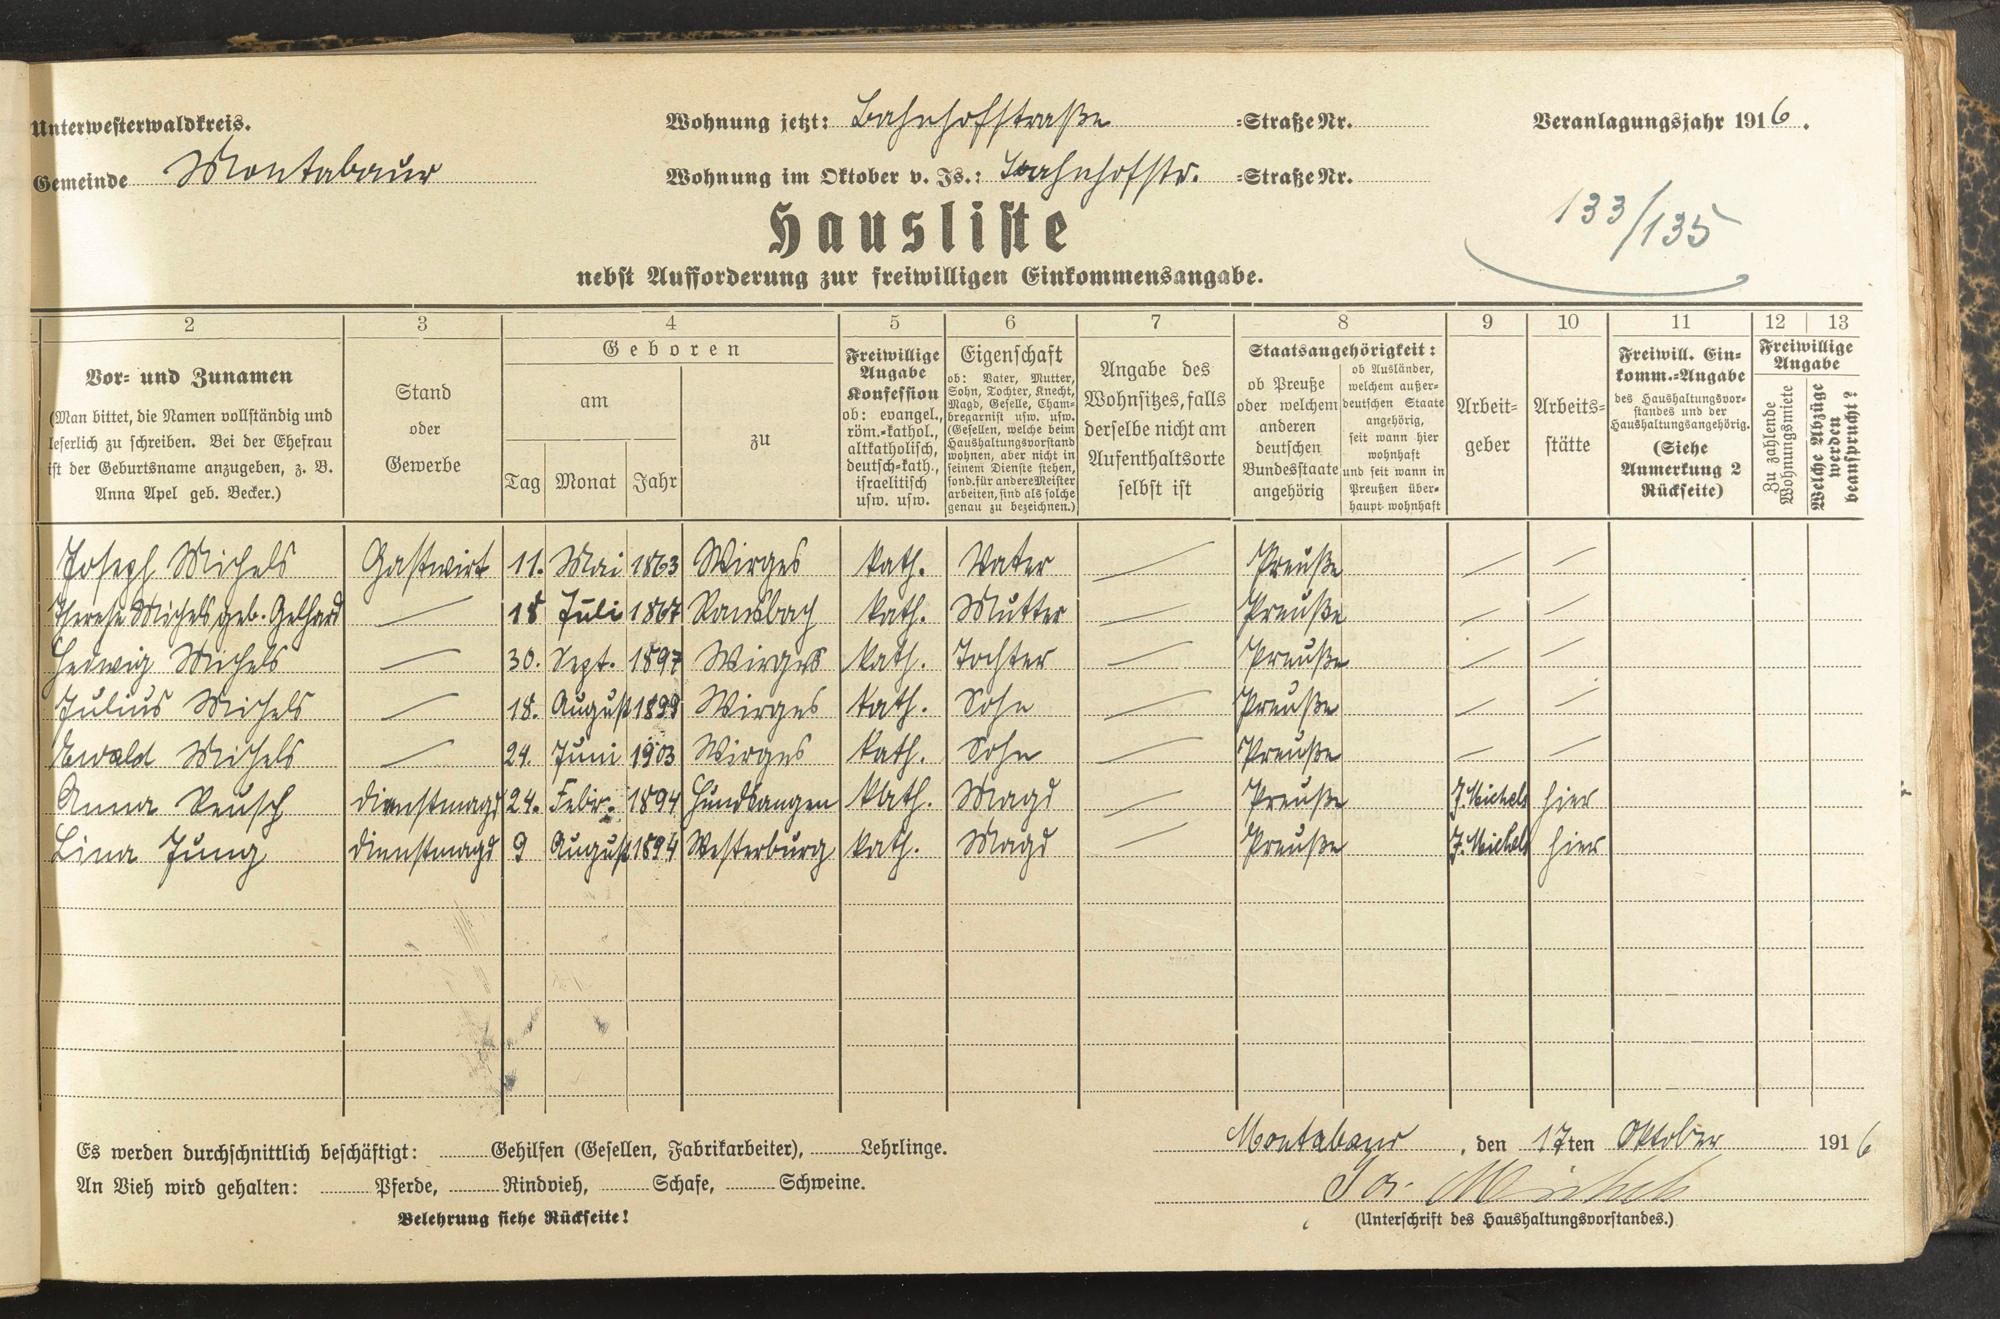 Unterwesterwaldkreis.
Wohnung jetzt: Bahnhofstraße =Straße Nr.
Veranlagungsjahr 1916.
Gemeinde Montabaur
Wohnung im Oktober v. Js.: Bahnhofstr. =Straße Nr.
133/135
Hausliste
nebst Aufforderung zur freiwilligen Einkommensangabe.
2 3 4 5 6 7 8 9 10 11 12 13
Vor- und Zunamen
(Man bittet, die Namen vollständig und
leserlich zu schreiben. Bei der Ehefrau
ist der Geburtsname anzugeben, z. B.
Anna Apel geb. Becker.)
Stand
oder
Gewerbe
Geboren
am
Tag Monat Jahr
zu
Freiwillige
Angabe
Konfession
ob: evangel.,
röm.-kathol.,
altkatholisch,
deutsch-kath.,
israelitisch
usw. usw.
Eigenschaft
ob: Vater, Mutter,
Sohn, Tochter, Knecht,
Magd, Geselle, Cham-
bregarnist usw. usw.
(Gesellen, welche beim
Haushaltungsvorstand
wohnen, aber nicht in
seinem Dienste stehen,
sond. für andere Meister
arbeiten, sind als solche
genau zu bezeichnen.)
Angabe des
Wohnsitzes, falls
derselbe nicht am
Aufenthaltsorte
selbst ist
Staatsangehörigkeit:
ob Preuße
oder welchem
anderen
deutschen
Bundesstaate
angehörig
ob Ausländer,
welchem außer-
deutschen Staate
angehörig,
seit wann hier
wohnhaft
und seit wann in
Preußen über-
haupt wohnhaft
Arbeit-
geber
Arbeits-
stätte
Freiwill. Ein-
komm.-Angabe
des Haushaltungsvor-
standes und der
Haushaltungsangehörig.
(Siehe
Anmerkung 2
Rückseite)
Freiwillige
Angabe
Zu zahlende
Wohnungsmiete
Welche Abzüge
werden
beansprucht?
Joseph Michels Gastwirt 11. Mai 1863 Wirges kath. Vater — Preuße — —
Therese Michels, geb. Gelhard — 18 Juli 1867 Ransbach kath. Mutter — Preuße — —
Hedwig Michels — 30. Sept. 1897 Wirges kath. Tochter — Preuße — —
Julius Michels — 18. August 1899 Wirges kath. Sohn — Preuße — —
Ewald Michels — 24. Juni 1903 Wirges kath. Sohn — Preuße — —
Anna Reusch Dienstmagd 24. Febr. 1894 Hundsangen kath. Magd — Preuße J. Michels hier
Lina Jung Dienstmagd 9 August 1894 Westerburg kath. Magd — Preuße J. Michels hier
Es werden durchschnittlich beschäftigt: Gehilfen (Gesellen, Fabrikarbeiter), Lehrlinge.
An Vieh wird gehalten: Pferde, Rindvieh, Schafe, Schweine.
Belehrung siehe Rückseite!
Montabaur, den 17ten Oktober 1916
Jos. Michels
(Unterschrift des Haushaltungsvorstandes.)